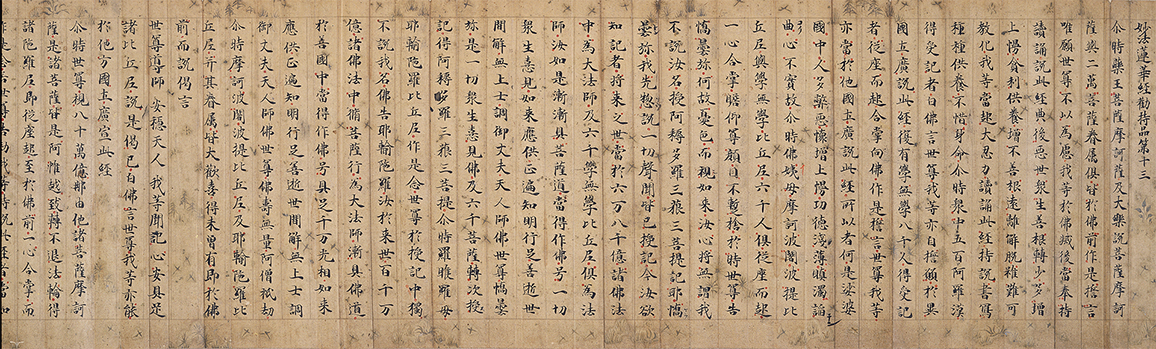 妙法蓮華經勸持品第十三
尒時藥王菩薩摩訶薩及大樂說菩薩摩訶
薩與二萬菩薩眷屬俱皆於佛前作是誓言
唯願世尊不以為慮我等於佛滅後當奉持
讀誦說此經典後惡世眾生善根轉少多增
上慢貪利供養增不善根遠離解脫雖難可
教化我等當起大忍力讀誦此經持說書寫
種種供養不惜身命尒時眾中五百阿羅漢
得受記者白佛言世尊我等亦自誓願於異
國土廣說此經復有學無學八千人得受記
者從座而起合掌向佛作是誓言世尊我等
亦當於他國土廣說此經所以者何是娑婆
國中人多弊惡懷增上慢功德淺薄瞋濁諂
曲心不實故尒時佛姨母摩訶波闍波提比
丘尼與學無學比丘尼六千人俱從座而起
一心合掌瞻仰尊顏目不暫捨於時世尊告
憍曇弥何故憂色而視如來汝心將無謂我
不說汝名授阿耨多羅三藐三菩提記耶憍
曇弥我先惣說一切聲聞皆已授記今汝欲
知記者將來之世當於六万八千億諸佛法
中為大法師及六千學無學比丘尼俱為法
師汝如是漸漸具菩薩道當得作佛号一切
眾生憙見如來應供正遍知明行足善逝世
間解無上士調御丈夫天人師佛世尊憍曇
弥是一切眾生憙見佛及六千菩薩轉次授
記得阿耨多羅三藐三菩提尒時羅睺羅母
耶輸陁羅比丘尼作是念世尊於授記中獨
不說我名佛告耶輸陁羅汝於來世百千万
億諸佛法中循菩薩行為大法師漸具佛道
於善國中當得作佛号具足千万光相如來
應供正遍知明行足善逝世間解無上士調
御丈夫天人師佛世尊佛壽無量阿僧祇劫
尒時摩訶波闍波提比丘尼及耶輸陁羅比
丘尼并其眷屬皆大歡喜得未曾有即於佛
前而說偈言
世尊導師 安穩天人 我等聞記 心安具足
諸比丘尼說是偈已白佛言世尊我等亦能
於他方國土廣宣此經
尒時世尊視八十萬億那由他諸菩薩摩訶
薩是諸菩薩皆是阿惟越致轉不退法輪得
諸陁羅尼即從座起至於佛前一心合掌而
作是念若世尊告勅我等持說此經者當如